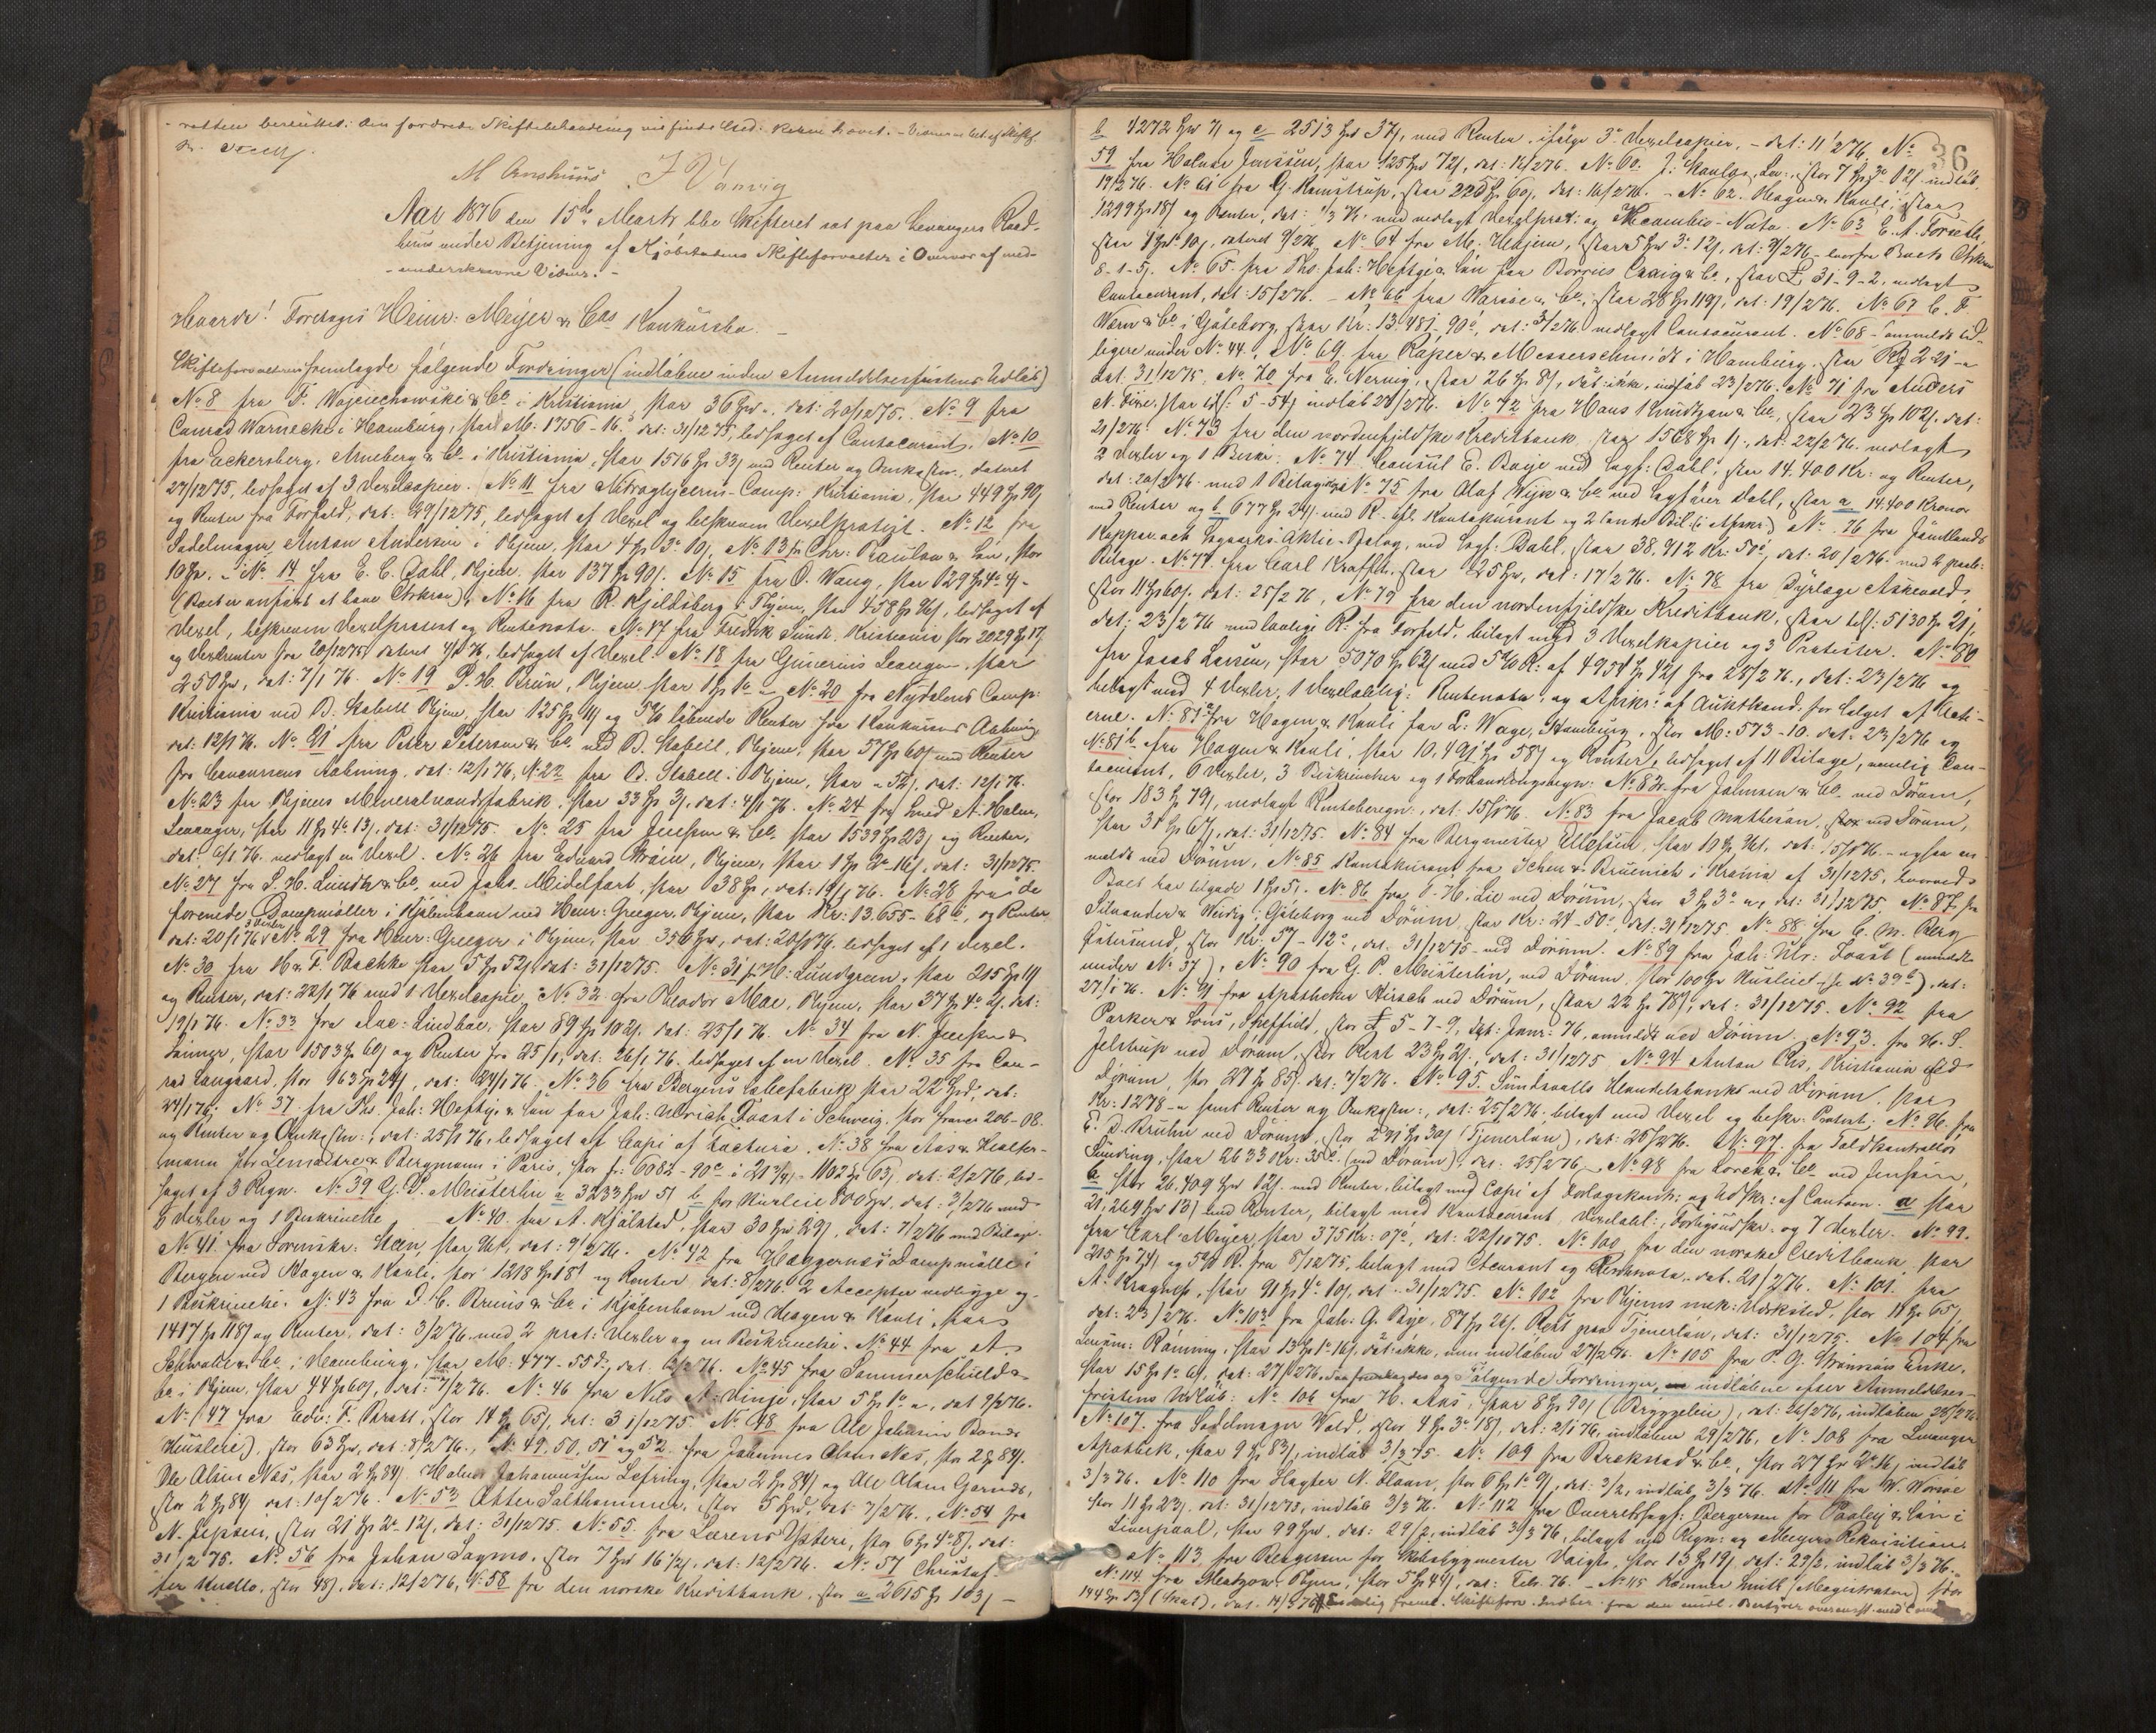 retten besluttet: den fordrede Skiftebehandling
M Arnshuus J Vanvig
Aar 1876 den 15de Marts blev Skifteret sat paa Levangers Raad-
huus under Betjening af Kjøbstadens Skifteforvalter i Overvær af ned-
underskrevne Vidner. -
Hvorda! Foretoges Heinr: Meijer & Cos Konkursbo. -
Skifteforvalteren fremlagde følgende Fordringer (indløbne inden Anmeldelsesfristens Udløb)
No 8 fra F. Wojciechowski & Co i Kristiania, stor 36 Spd -. dat: 20/12 75. No 9 fra
Conrad Warnecke i Hamburg, stor M. 1756-16. dat: 31/12 75, ledsaget af Contocurant. No 10
fra Eckersberg, Arneberg & Co i Kristiania, stor 1516 Sp 33 og med Renter og Omkostn., dateret
27/12 75, ledsaget af 3 Vexelcopier. No 11 fra Nitroglycerin-Comp: Kristiania, stor 449 Sp 90
og Renter fra Forfald, dat: 29/12 75, ledsaget af Vexel og beskreven Vexelprotest. No 12 fra
Sadelmager Anton Andersen i Thjem, stor 4 Sp 3 10, No 13 fr Chr: Paulsen & Søn, stor
10 Sp. - No 14 fra E. C. Dahl, Thjem. stor 137 Sp 90. No 15 fra O. Waug, stor 129 Sp 4
(Boet er anført at have Tilkrav), No 16 fra R. Kjeldsberg i Thjem, stor 458 Sp, ledsaget af
Vexel, beskreven Vexelprotest og Rentenota. No 17 fra Fredrik Sundt. Kristiania stor 2029 Sp 17
og Vexelrenter fra 20/12 75, dateret 4/1 76, ledsaget af Vexel. No 18 fra Gunerius Leangen, stor
250 Spd, dat: 7/1 76. No 19 P. H. Brun, Thjem stor 1 Sp 1 - No 20 fra Nydalens Comp:
Kristiania ved B. Stabell Thjem, stor 125 Sp 11 og 5% løbende Renter fra Konkursens Aabning
dat: 12/1 76. No 21 fra Peter Petersen & Co ved B. Stabell, Thjem, stor 57 Sp 60 med Renter
fra Concursens Aabning. dat: 12/1 76, N. 22 fra B. Stabell i Thjem, stor - 52, dat: 12/1 76.
No 23 fra Thjems Mineralvandsfabrik, stor 33 Sp 3, dat: 4/1 76. No 24 fra A. Holm,
Levanger, stor 11 Sp 4 13, dat: 31/12 75. No 25 fra Jenssen & Co. stor 1539 Sp 23 og Renter,
dat: 6/1 76. vedlagt en Vexel. No 26 fra Eduard Strøm, Thjem, stor 1 Sp 2 16, dat: 31/12 75.
No 27 fra S. H. Lundh & Co. ved Johs. Midelfart, stor 38 Sp, dat: 19/1 76. No 28 fra de
forenede Dampmøller i Kjøbenhavn ved Heinr: Greeger, Thjem, stor Kr: 13.655-68, og Renter,
3 Vexler
dat: 20/1 76. No 29 fra Heinr: Greeger i Thjem, stor 356 Spd, dat: 20/1 76. ledsaget af 1 Vexel.
No 30 fra H & F. Bachke stor 5 Sp 52 dat: 31/12 75. No 31 fr H: Lundgreen, stor 215 Sp 11
og Renter, dat: 22/1 76 med 1 Vexelcopie, No 32 fra Theodor Moe, Thjem, stor 37 Sp 4 2, dat:
19/1 76. No 33 fra Aug: Lindboe, stor 89 Sp 102. dat: 25/1 76. No 34 fra N. Jenssen &
Sønner, stor 1503 Sp 60 og Renter fra 25/1, dat: 26/1 76. ledsaget af en Vexel. No 35 fra Con-
rad Langaard, stor 963 Sp 24, dat: 24/1 76. No 36 fra Bergens Tallefabrik, stor 22 Spd, dat:
24/1 76, No 37 fra Ths. Joh: Heftye & Søn for Joh: Ulrich Toast i Schweig. stor francs 206-08.
og Renter og Omkostn:, dat: 25/1 76, ledsaget af Copi af Factura. No 38 fra Aas & Healter-
mann for Lemaitre & Bergmann i Paris, stor fr: 6082-90c à 21 3/4 - 1102 Sp 63, dat: 2/2 76, led-
saget af 3 Regn. No 39 G. P. Meisterlin a 3233 Spd 51 b for Huusleie 100 Spd, dat: 3/2 76 med
6 Vexler og 1 Beskrivelse. - No 40. fra A. Kjølsted, stor 30 Spd 29, dat: 7/2 76 med Bilage.
No 41. fra Sorenskr: Steen, stor 96, dat: 9/2 76. No 42 fra Høggernæs Dampmølle i
Bergen ved Hagen & Kauli, stor 1218 Sp 18 og Renter dat: 8/2 76. 2 Accepter vedlagte og
1 Beskrivelse. No. 43 fra D. C. Bruuns & Co. i Kjøbenhavn ved Hagen & Kauli, stor
1417 Sp 118 og Renter, dat: 3/2 76 med 2 prot: Vexler og en Beskrivelse. No 44 fra A
Schwalbe & Co. i Hamburg, stor M: 477-55d, dat. 12/2 76. No 45 fra Sommerschield &
Co i Thjem, stor 44 Sp 60, dat: 7/2 76. No 46 fra Nils A. Vinje, stor 5 Sp 1 -, dat 9/2 76.
No 47 fra Edv: F. Bratt, stor 14 Sp 65, dat: 31/12 75 No 48 fra Ole Johnsen Bonde
(Huusleie), stor 63 Spd, dat: 8/2 76, No. 49, 50, 51 og 52. fra Johannes Olsen Næs, stor 2 Sp 84.
Ole Olsen Næs, stor 2 Sp 84. Helmer Johannessen Lefring, stor 2 Sp 84 og Ole Olsen Garnæs,
stor 2 Sp 84 dat: 10/2 76. No 53 Otter Salthammer, stor 5 Spd, dat 7/2 76. No 54 fra
N. Jepsen, stor 21 Sp 2 12, dat: 31/12 75. No 55 fra Lorens Ystere, stor 6 Sp 4 8, dat:
31/12 75. No 56 fra Johan Sagmo. stor 7 Spd 16 1/2, dat: 12/2 76. No 57 Christof-
fer Snello, stor 48, dat: 12/2 76, No 58 fra den norske Kreditbank, stor a 2615 Sp 103 -
36
b 4272 Spd 71 og c 2513 Spd 37, med Renter, ifølge 3 Vexelcopier. - dat: 11/2 76 No
59 fra Halvor Jenssen, stor 125 Spd 72, dat: 12/2 76. No 60. J. Skavlan, Lev:, stor 7 Sp 3 - 12 indløb
19/2 76. No 61 fra G. Kamstrup, stor 225 Sp 60, dat: 16/2 76. - No 62. Hagen & Kauli, stor
1299 Sp 18 og Renter, dat: 1/3 76 med vedlagt Vexelprot: og Recambio-Nota. No 63 E. A. Forseth,
stor 1 Sp 10, dateret 9/2 76 No 64 fra M. Hehjem, stor 5 Spd 3 12, dat: 9/2 76 - hvorfra Boets Tilkrav
8-1-5. No 65 fra Ths: Joh: Heftye & Søn for Borries Craig & Co, stor £ 31-9-2, vedlagt
Contocurant, dat: 15/2 76. - No 66 fra Warsøe & Co, stor 28 Sp 119, dat: 19/2 76. No 67 C. F.
Wærn & Co i Gøteborg, stor Kr: 13.481-90, dat: 3/2 76 vedlagt Contocurant. No 68 - anmeldt tid-
ligere under No 44. No 69 fra Røper & Messerschmidt i Hamburg, stor 221 -
dat. 31/12 75. No 70 fra E. Nervig, stor 26 Sp 8, dat: ikke, indløb 23/2 76. No 71 fra Anders
N. Fixe, stor tils: 5-54 indløb 21/2 76. No 72 fra Hans Knudtzon & Co, stor 23 Sp 102. dat:
21/2 76. No 73 fra den nordenfjeldske Kreditbank stor 1568 Sp 1, dat: 22/2 76. vedlagt
2 Vexler og 1 Beskr. No 74 Consul E. Bøye ved Sagf: Dahl, stor 14.400 Kr: og Renter,
dat: 20/2 76. med 1 Bilag og No 75 fra Olof Wijk & Co ved Sagfører Dahl, stor a 14.400 Kronor
med Renter og b 677 Sp 24 med R. ifl. Kontokurant og 2 andre Bil: (i Afskr:) No. 76 fra Jämtlands
Koppar och Sågwerks Aktie-Bolag, ved Sagf: Dahl, stor 38.912 Kr: 50, dat: 20/2 76 med 2
Bilage. No 77. fra Carl Krafft, stor 25 Spd, dat: 17/2 76. No 78 fra Dyrlæge Askevold
stor 11 Sp 60, dat: 25/2 76, No 79 fra den nordenfjeldske Kreditbank, stor tils: 5130 Sp 21,
dat: 23/2 76 med lovlige R: fra Forfald, bilagt med 3 Vexelkopier og 3 Protester. No 80
fra Jacob Larsen, stor 5070 Sp 62 med 5% R: af 4954 Sp 42 fra 28/2 76, dat: 23/2 76 og
bilagt med 4 Vexler, 1 Vexelobblig: Rentenota, og Afskr: af Auktskond. for Salget af Akti-
erne. No 81a fra Hagen & Kauli for L: Wage, Hamburg, stor M: 573-10. dat: 23/2 76 og
No 81b fra Hagen & Kauli, stor 10,491 Sp 58 og Renter, ledsaget af 11 Bilage, nemlig Con-
tocurant, 6 Vexler, 3 Beskrivelser og 1 Forhandlingsregn: No 82. fra Johnsen & Co ved Dørum,
stor 183 Sp 79, vedlagt Renteberegn:, dat. 15/1 76. No 83 fra Jacob Matheson, stor ved Dørum,
stor 31 Sp 67, dat: 31/12 75. No 84 fra Bergmester Ellefsen, stor 10 Sp 96, dat: 15/1 76 - ogsaa an-
meldt ved Dørum, No 85 Kontokurant fra Ichen & Bruenich i Krania af 31/12 75, hvorved
Boet har tilgode 1 Sp 5. No 86 fra O. H. Lie ved Dørum, stor 3 Sp 3 -, dat: 31/12 75 No 87 fra
Silvander & Weidig i Gøteborg ved Dørum stor Kr: 24-50, dat: 31/12 75 No 88 fra C. M. Berg
stor Kr: 57-12, dat. 31/12 75 ved Dørum. No 89 fra Joh: Ulr: Toast (anmeldt
under No 37), No 90 fra G. P. Meisterlin, ved Dørum, stor 100 Spd Husleie (se No 39b), dat:
27/1 76. No 91 fra Apotheker Hirsch ved Dørum, stor 22 Sp 78, dat: 31/12 75. No 92 fra
Parker & Sons, Sheffield, stor £ 5-7-9, dat: Janr: 76, anmeldt ved Dørum, No 93. fra H. S.
Jelstrup ved Dørum, stor Rest 23 Sp 2, dat: 31/12 75 No 94 Anton Aas, Kristiania ved
Dørum, stor 27 Sp 85, dat: 7/2 76. No 95. Sundsvalls Handelsbank ved Dørum, stor
Kr: 1278 - samt Renter og Omkostn:, dat: 25/2 76, bilagt med Vexel og beskr. Protest, No 96. fra
E. D. Bruhn ved Dørum, stor 291 Sp 30 (Tjenerløn), dat: 26/2 76. No 97 fra Toldkontrollør
Lunding, stor 2633 Kr: 35 (ved Dørum), dat: 25/2 76. - No 98 fra Lorck & Co ved Jenssen,
b stor 26.409 Spd 12. med Renter, bilagt med Copi af Forlagskontr: og Udskr: af Contoen. a stor
21,269 Spd 13 med Renter, bilagt med Kontocurant Vexelobl:, Forligsudskr. og 7 Vexler. No 99.
fra Carl Meyer, stor 375 Kr: 07, dat: 22/10 75. No 100 fra den norske Creditbank, stor
215 Sp 74 og 5% R. fra 8/12 75, bilagt med Ctcurant og Rentenota. dat. 21/2 76. No 101. fra
A. Kragrup, stor 91 Sp 4 10, dat: 31/12 75. No 102 fra Thjems mek: Værksted, stor 11 Sp 65
dat: 23/2 76. No 103 fra Joh: G. Bye, 87 Sp 26. Rest paa Tjenerløn, dat: 31/12 75. No 104 fra
Lensm: Rønning, stor 13 Sp 1 16, dat: ikke, men indløben 27/2 76. No 105 fra P. G. Strømsøes Enke,
stor 15 Sp 1 6, dat: 27/2 76. Saa fremlagdes og Følgende Fordringer, indløbne efter Anmeldelses-
fristens Udløb: No 106 fra H. Aas, stor 8 Sp 90 (Bryggeleie), dat: 26/2 76, indløben 28/2 76
No 107. fra Sadelmager Wold, stor 4 Sp 3 18, dat: 2/1 76, indløben 29/2 76, No 108 fra Levanger
Apothek, stor 9 Sp 83, indløb 3/3 75. No 109 fra Brækstad & Co, stor 27 Spd 2 16, indløb
3/3 76. No 110 fra Slagter N. Floan, stor 6 Sp 1 9, dat: 3/2, indløb 3/3 76. No 111 fra W. Worsøe
stor 11 Sp 23, dat: 31/12 75, indløb 3/3 76. No 112 fra Overretssagf: Bergersen for Pooley & Søn i
Liverpool, stor 99 Spd, dat: 29/2, indløb 3/3 76, bilagt med Regn: og Meyers Rekvisition.
No 113. fra Bergersen for Skibsbygmester Voigt, stor 13 Sp 19, dat: 29/2, indløb 3/3 76.
No 114. fra Mentzoni Thjem, stor 5 Sp 44, dat: Febr. 76. - No 115 Kæmner Smith (Magistraten) stor
144 Sp 13 (Skat), dat. 14/3 76. Endelig freml. Skifteforv. Indber. fra den midl. Bestyrer overensst. med